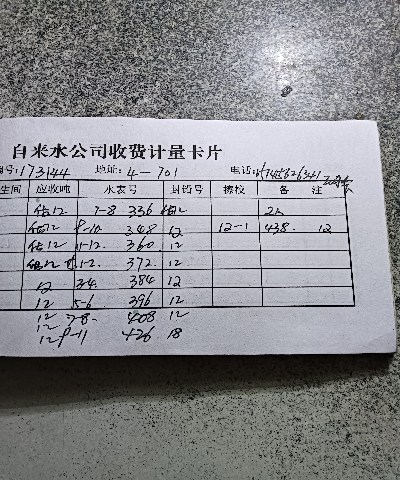 自来水公司收费计量卡片
号:173144 地址: 4-701 电话:
生间 应收吨 水表号 封铅号 换校 备 注
估12 7-8 336 12 2人
估12 9-10 348 12 12-1 438. 12
估12 11-12 360 12
估12 1-2. 372 12
12 3-4. 384 12
12 5-6 396 12
12 7-8. 408 12
12 9-11 426 18